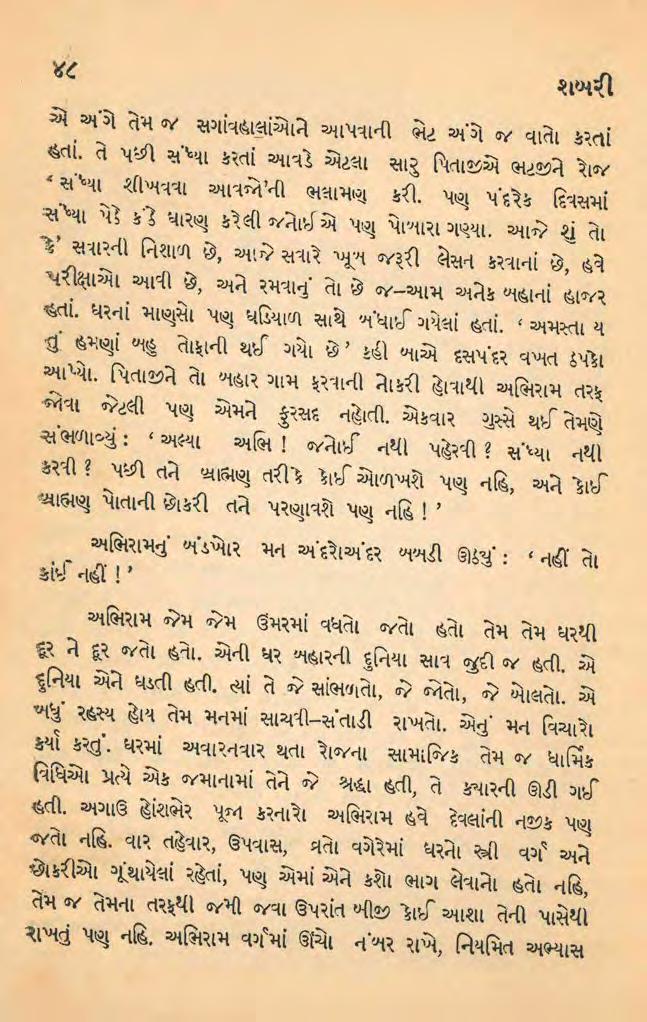 ૪૮
શબરી
એ અંગે તેમ જ સગાંવહાલાંઓને આપવાની ભેટ અંગે જ વાતો કરતાં
હતાં. તે પછી સંધ્યા કરતાં આવડે એટલા સારુ પિતાજીએ ભટજીને રોજ
‘સંધ્યા શીખવવા આવજો’ની ભલામણ કરી. પણ પંદરેક દિવસમાં
સંધ્યા પેઠે કંઠે ધારણ કરેલી જનોઈએ પણ પોબારા ગણ્યા. આજે શું તો
કે’ સવારની નિશાળ છે, આજે સવારે ખૂબ જરૂરી લેસન કરવાનાં છે, હવે
પરીક્ષાઓ આવી છે, અને રમવાનું તો છે જ–આમ અનેક બહાનાં હાજર
હતાં. ઘરનાં માણસો પણ ઘડિયાળ સાથે બંધાઈ ગયેલાં હતાં. ‘અમસ્તા ય
તું હમણાં બહુ તોફાની થઈ ગયો છે’ કહી બાએ દસપંદર વખત ઠપકો
આપ્યો. પિતાજીને તો બહાર ગામ ફરવાની નોકરી હોવાથી અભિરામ તરફ
જોવા જેટલી પણ એમને ફુરસદ નહોતી. એકવાર ગુસ્સે થઈ તેમણે
સંભળાવ્યું : ‘અલ્યા અભિ ! જનોઈ નથી પહેરવી ? સંધ્યા નથી
કરવી ? પછી તને બ્રાહ્મણ તરીકે કોઈ ઓળખશે પણ નહિ, અને કોઈ
બ્રાહ્મણ પોતાની છોકરી તને પરણાવશે પણ નહિ ! ’
અભિરામનું બંડખોર મન અંદરોઅંદર બબડી ઊઠ્યું : ‘નહીં તો
કાંઈ નહીં !’
અભિરામ જેમ જેમ ઉંમરમાં વધતો જતો હતો તેમ તેમ ઘરથી
દૂર ને દૂર જતો હતો. એની ઘર બહારની દુનિયા સાવ જુદી જ હતી. એ
દુનિયા એને ઘડતી હતી. ત્યાં તે જે સાંભળતો, જે જોતો, જે બોલતો. એ
બધું રહસ્ય હોય તેમ મનમાં સાચવી–સંતાડી રાખતો. એનું મન વિચારો
કર્યા કરતું. ઘરમાં અવારનવાર થતા રોજના સામાજિક તેમ જ ધાર્મિક
વિધિઓ પ્રત્યે એક જમાનામાં તેને જે શ્રદ્ધા હતી, તે ક્યારની ઊડી ગઈ
હતી. અગાઉ હોંશભેર પૂજા કરનારો અભિરામ હવે દેવલાંની નજીક પણ
જતો નહિ. વાર તહેવાર, ઉપવાસ, વ્રતો વગેરેમાં ઘરનો સ્ત્રી વર્ગ અને
છોકરીઓ ગૂંથાયેલાં રહેતાં, પણ એમાં એને કશો ભાગ લેવાનો હતો નહિ,
તેમ જ તેમના તરફથી જમી જવા ઉપરાંત બીજી કોઈ આશા તેની પાસેથી
રાખતું પણ નહિ. અભિરામ વર્ગમાં ઊંચો નંબર રાખે, નિયમિત અભ્યાસ